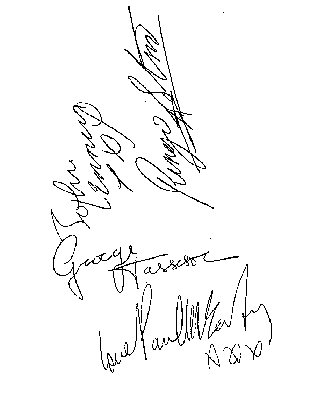 John
Lennon
Ringo Starr
George Harrison
love Paul McCartney
xxx